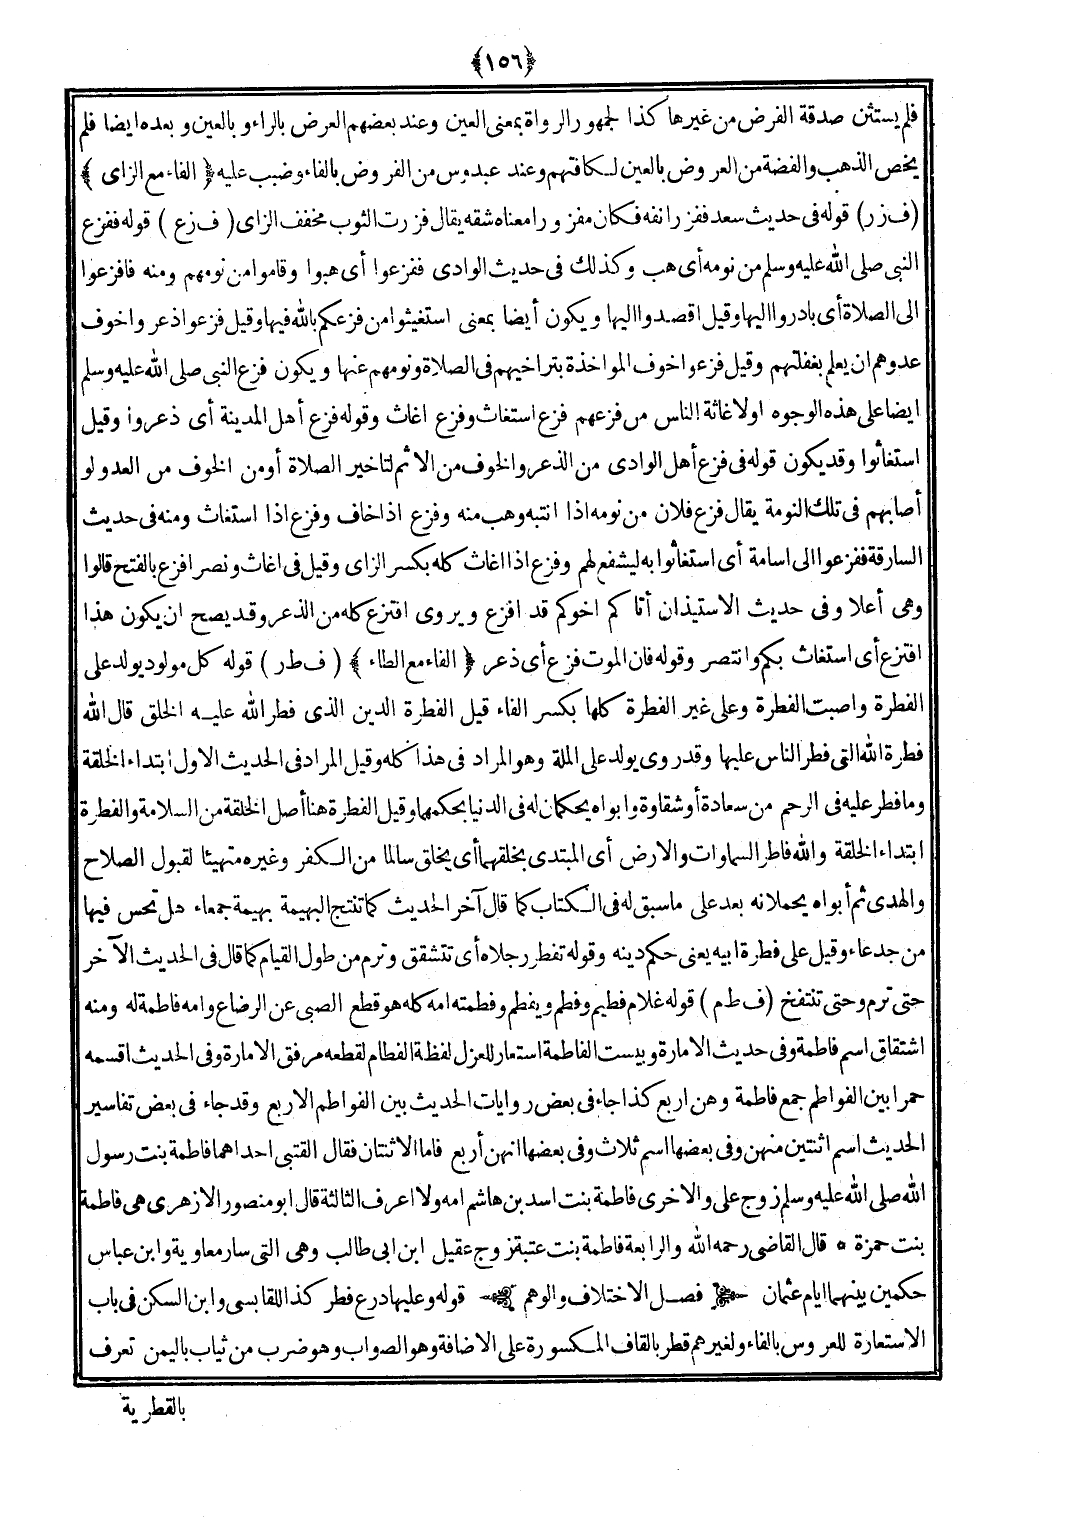 ﴿١٥٦﴾
فلم يستثن صدقة الفرض من غيرها كذا لجمهور الرواة بمعنى العين وعند بعضهم العرض بالراء و بالعين و بعده ايضا فلم
يخص الذهب والفضة من العروض بالعين لكافتهم وعند عبدوس من الفروض بالفاء وضبب عليه ﴿ الفاء مع الزاى ﴾
(ف زر) قوله فى حديث سعد ففزر انفه فكان مفزورا معناه شقه يقال فزرت الثوب مخفف الزاى ( ف زع ) قوله ففزع
النبى صلى الله عليه وسلم من نومه أى هب وكذلك فى حديث الوادى ففزعوا أى هبوا وقاموا من نومهم ومنه فافزعوا
الى الصلاة أى بادروا اليها وقيل اقصدوا اليها ويكون أيضا بمعنى استغيثوا من فزعكم بالله فيها وقيل فزعوا ذعروا خوف
عدوهم ان يعلم بغفلتهم وقيل فزعوا خوف المواخذة بتراخيهم فى الصلاة ونومهم عنها ويكون فزع النبى صلى الله عليه وسلم
ايضا على هذه الوجوه اولاغاثة الناس من فزعهم فزع استغاث وفزع اغاث وقوله فزع أهل المدينة أى ذعروا وقيل
استغاثوا وقد يكون قوله فى فزع أهل الوادى من الذعر والخوف من الاثم لتاخير الصلاة أو من الخوف من العدو لو
أصابهم فى تلك النومة يقال فزع فلان من نومه اذا انتبه وهب منه وفزع اذا خاف وفزع اذا استغاث ومنه فى حديث
السارقة ففزعوا الى اسامة أى استغاثوا به ليشفع لهم وفزع اذا اغاث كله بكسر الزاى وقيل فى اغاث ونصر افزع بالفتح قالوا
وهى أعلا وفى حديث الاستيذان أتاكم اخوكم قد افزع ويروى افتزع كله من الذعر وقد يصح ان يكون هذا
افتزع أى استغاث بكم وانتصر وقوله فان الموت فزع أى ذعر ﴿ الفاء مع الطاء ﴾ ( ف طر ) قوله كل مولود يولد على
الفطرة واصبت الفطرة وعلى غير الفطرة كلها بكسر الفاء قيل الفطرة الدين الذى فطر الله عليه الخلق قال الله
فطرة الله التى فطر الناس عليها وقد روى يولد على الملة وهو المراد فى هذا كله وقيل المراد فى الحديث الاول ابتداء الخلقة
وما فطر عليه فى الرحم من سعادة أو شقاوة وابواه يحكمان له فى الدنيا بحكمهما وقيل الفطرة هنا أصل الخلقة من السلامة والفطرة
ابتداء الخلقة والله فاطر السماوات والارض أى المبتدى بخلقهما أى يخلق سالما من الكفر وغيره متهيئا لقبول الصلاح
والهدى ثم أبواه يحملانه بعد على ما سبق له فى الكتاب كما قال آخر الحديث كما تنتج البهيمة بهيمة جمعاء هل تحس فيها
من جدعاء وقيل على فطرة ابيه يعنى حكم دينه وقوله تفطر رجلاه أى تتشقق وترم من طول القيام كما قال فى الحديث الآخر
حتى ترم وحتى تنتفخ (ف طم ) قوله غلام فطيم وفطم ويفطم وفطمته امه كله هو قطع الصبى عن الرضاع وامه فاطمة له ومنه
اشتقاق اسم فاطمة وفى حديث الامارة وبيست الفاطمة استعار للعزل لفظة الفطام لقطعه مرفق الامارة وفى الحديث اقسمه
حمرا بين الفواطم جمع فاطمة وهن اربع كذا جاء فى بعض روايات الحديث بين الفواطم الاربع وقد جاء فى بعض تفاسير
الحديث اسم اثنتين منهن وفى بعضها اسم ثلاث وفى بعضها انهن أربع فاما الاثنتان فقال القتبى احداهما فاطمة بنت رسول
الله صلى الله عليه وسلم زوج على والاخرى فاطمة بنت اسد بن هاشم امه ولا اعرف الثالثة قال ابو منصور الازهرى هى فاطمة
بنت حمزة ۞ قال القاضى رحمه الله والرابعة فاطمة بنت عتبة زوج عقيل ابن ابى طالب وهى التى سار معاوية وابن عباس
حكمين بينهما ايام عثمان فصل الاختلاف والوهم قوله وعليها درع فطر كذا للقابسى وابن السكن فى باب
الاستعارة للعروس بالفاء ولغيرهم قطر بالقاف المكسورة على الاضافة وهو الصواب وهو ضرب من ثياب باليمن تعرف
بالقطرية